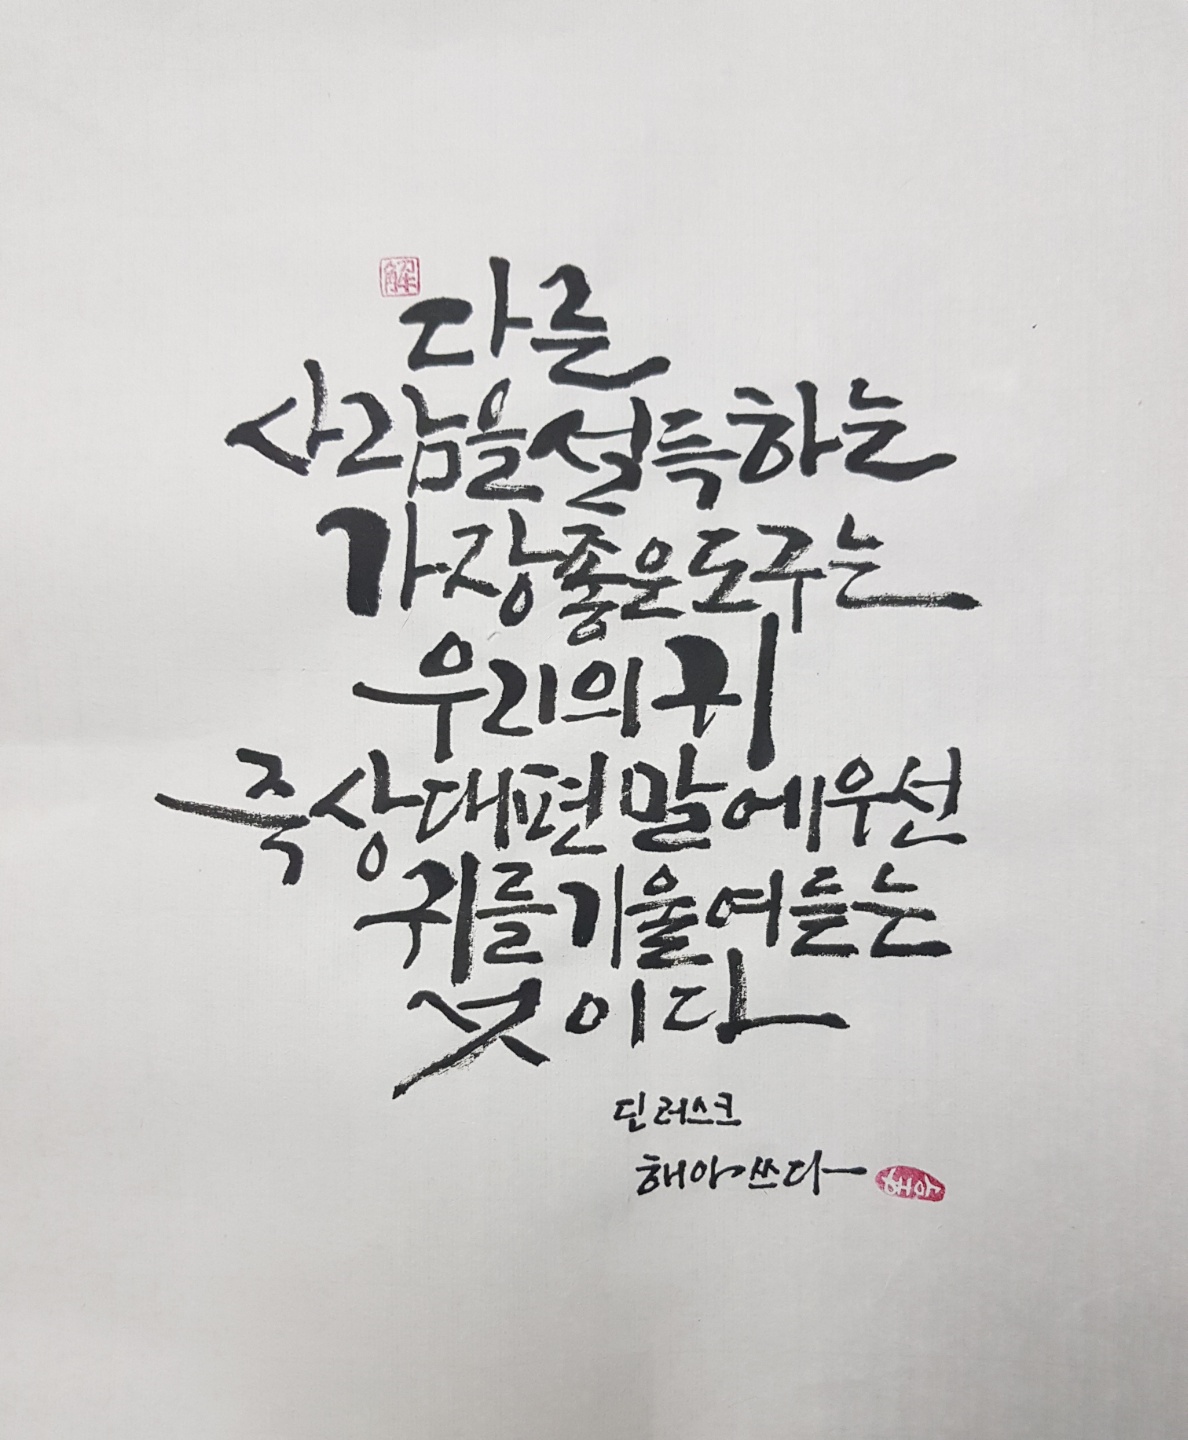 解
다른
사람을 설득하는
가장 좋은 도구는
우리의 귀
즉 상대편 말에 우선
귀를 기울여 듣는
것이다
딘 러스크
해아 쓰다
해아